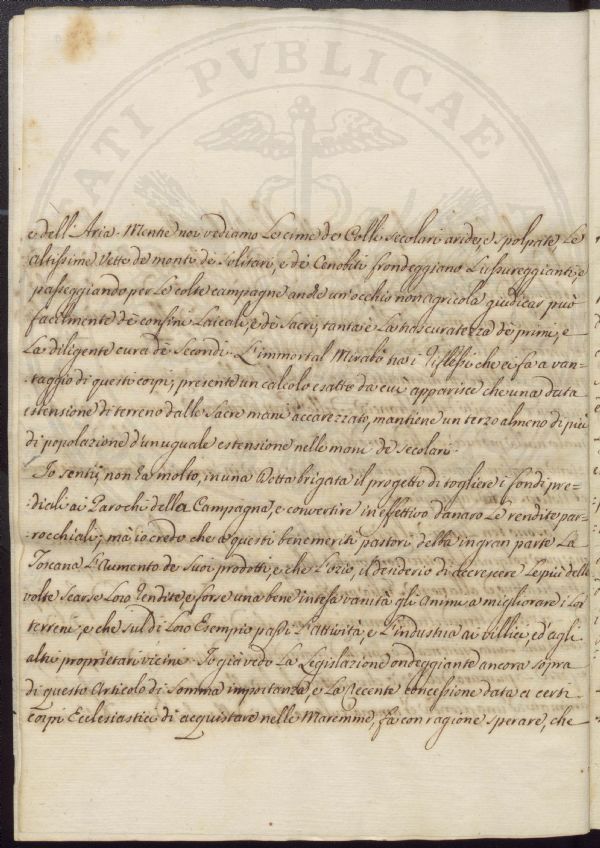 PVBLICAE
e dell'Aria. Mentre noi vediamo Le cime de Colli secolari aride, e spolpate, Le
altissime Vette de monti de Solitari, e de Cenobiti frondeggiano Lussureggianti, e
passeggiando per Le colte campagne anche un'occhio non agricola giudicar può
facilmente de confini Laicali, e de Sacri, tanta è La trascuratezza de primi, e
La diligente cura de Secondi. L'immortal Mirabò tra i riflessi che ei fa a van-
taggio di questi corpi, presente un calcolo esatto da cui apparisce che una data
estensione di terreno dalle Sacre mani accarezzato, mantiene un terzo almeno di più
di popolazione d'un uguale estensione nelle mani de secolari.
Io sentii, non ha molto, in una Dotta brigata il progetto di togliere i fondi pre-
diali ai Parochi della Campagna, e convertire in effettivo danaro Le rendite par-
rocchiali; mà io credo che a questi benemeriti pastori debba in gran parte La
Toscana L'Aumento de Suoi prodotti, e che L'ozio, il desiderio di accrescere Le più delle
volte scarse Loro rendite, e forse una bene intesa vanità gli Animi a migliorare i Lor
terreni, e che sul di Loro Esempio passi L'attività, e L'industria ai villici, ed agli
altri proprietari vicini. Io già vedo La Legislazione ondeggiante ancora sopra
di questo Articolo di Somma importanza, e La recente concessione data a certi
corpi Ecclesiastici di acquistare nelle Maremme, fa con ragione sperare, che